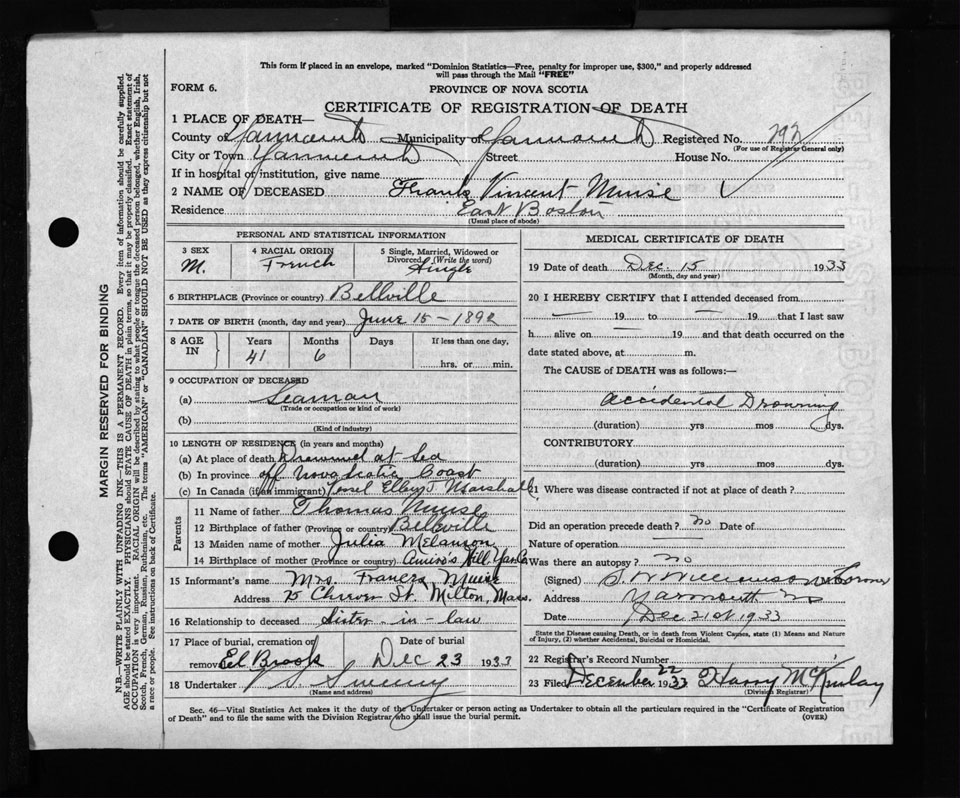 This form if placed in an envelope, marked "Dominion Statistics—Free, penalty for improper use, $300," and properly addressed
will pass through the Mail "FREE"
FORM 6.
PROVINCE OF NOVA SCOTIA
CERTIFICATE OF REGISTRATION OF DEATH
1 PLACE OF DEATH—
County of Yarmouth Municipality of Yarmouth Registered No. 292
(For use of Registrar General only)
City or Town Yarmouth Street House No.
If in hospital or institution, give name
2 NAME OF DECEASED Frank Vincent Muise
Residence East Boston
(Usual place of abode)
PERSONAL AND STATISTICAL INFORMATION
3 SEX M.
4 RACIAL ORIGIN French
5 Single, Married, Widowed or Divorced (Write the word) Single
6 BIRTHPLACE (Province or country) Bellville
7 DATE OF BIRTH (month, day and year) June 15 - 1892
8 AGE IN Years 41 Months 6 Days If less than one day, hrs. or min.
9 OCCUPATION OF DECEASED
(a) Seaman
(Trade or occupation or kind of work)
(b)
(Kind of industry)
10 LENGTH OF RESIDENCE (in years and months)
(a) At place of death Drowned at Sea
(b) In province off Nova Scotia Coast
(c) In Canada (if an immigrant) Marshall
Parents
11 Name of father Thomas Muise
12 Birthplace of father (Province or country) Bellville
13 Maiden name of mother Julia Melanson
14 Birthplace of mother (Province or country) Amiro's Hill Yar. Co
15 Informant's name Mrs. Frances Muise
Address 75 St. Milton, Mass.
16 Relationship to deceased Sister-in-law
17 Place of burial, cremation or removal Eel Brook Date of burial Dec 23 1933
18 Undertaker Sweeny
(Name and address)
MEDICAL CERTIFICATE OF DEATH
19 Date of death Dec. 15 1933
(Month, day and year)
20 I HEREBY CERTIFY that I attended deceased from
19 to 19 that I last saw
h alive on 19 and that death occurred on
date stated above, at m.
The CAUSE of DEATH was as follows:—
Accidental Drowning
(duration) yrs mos dys.
CONTRIBUTORY
(duration) yrs mos dys.
21 Where was disease contracted if not at place of death?
Did an operation precede death? no Date of
Nature of operation
Was there an autopsy? no
(Signed) Williamson Coroner
Address Yarmouth NS
Date Dec 21st 1933
State the Disease causing Death, or in death from Violent Causes, state (1) Means and Nature
of Injury, (2) whether Accidental, Suicidal or Homicidal.
22 Registrar's Record Number
23 Filed December 22 1933 Harry McKinlay
(Division Registrar)
Sec. 46—Vital Statistics Act makes it the duty of the Undertaker or person acting as Undertaker to obtain all the particulars required in the "Certificate of Registration
of Death" and to file the same with the Division Registrar who shall issue the burial permit.
(OVER)
MARGIN RESERVED FOR BINDING
N.B.—WRITE PLAINLY WITH UNFADING INK—THIS IS A PERMANENT RECORD. Every item of information should be carefully supplied.
AGE should be stated EXACTLY. PHYSICIANS should STATE CAUSE OF DEATH in plain terms, so that it may be properly classified. Exact statement of
OCCUPATION is very important. RACIAL ORIGIN will be described by stating to what people or tongue the deceased person belonged, whether English, Irish,
Scotch, French, German, Russian, Ruthenian, etc. The terms "AMERICAN" or "CANADIAN" SHOULD NOT BE USED as they express citizenship but not
a race or people. See instructions on back of Certificate.